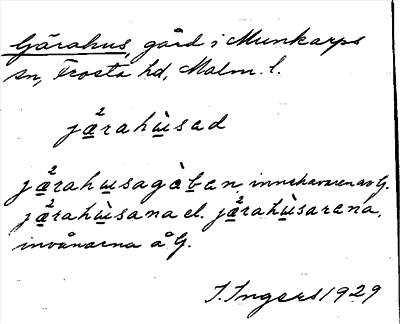 Gärahus, gård i Munkarps
sn, Frosta hd, Malm. l.
jæ̲²rahù̲sad
jæ̲²rahu̲sagàb̲an, innehavaren av G.
jæ̲²rahù̲sana el. jæ̲²rahù̲sarena,
invånarna å G.
I. Ingers 1929